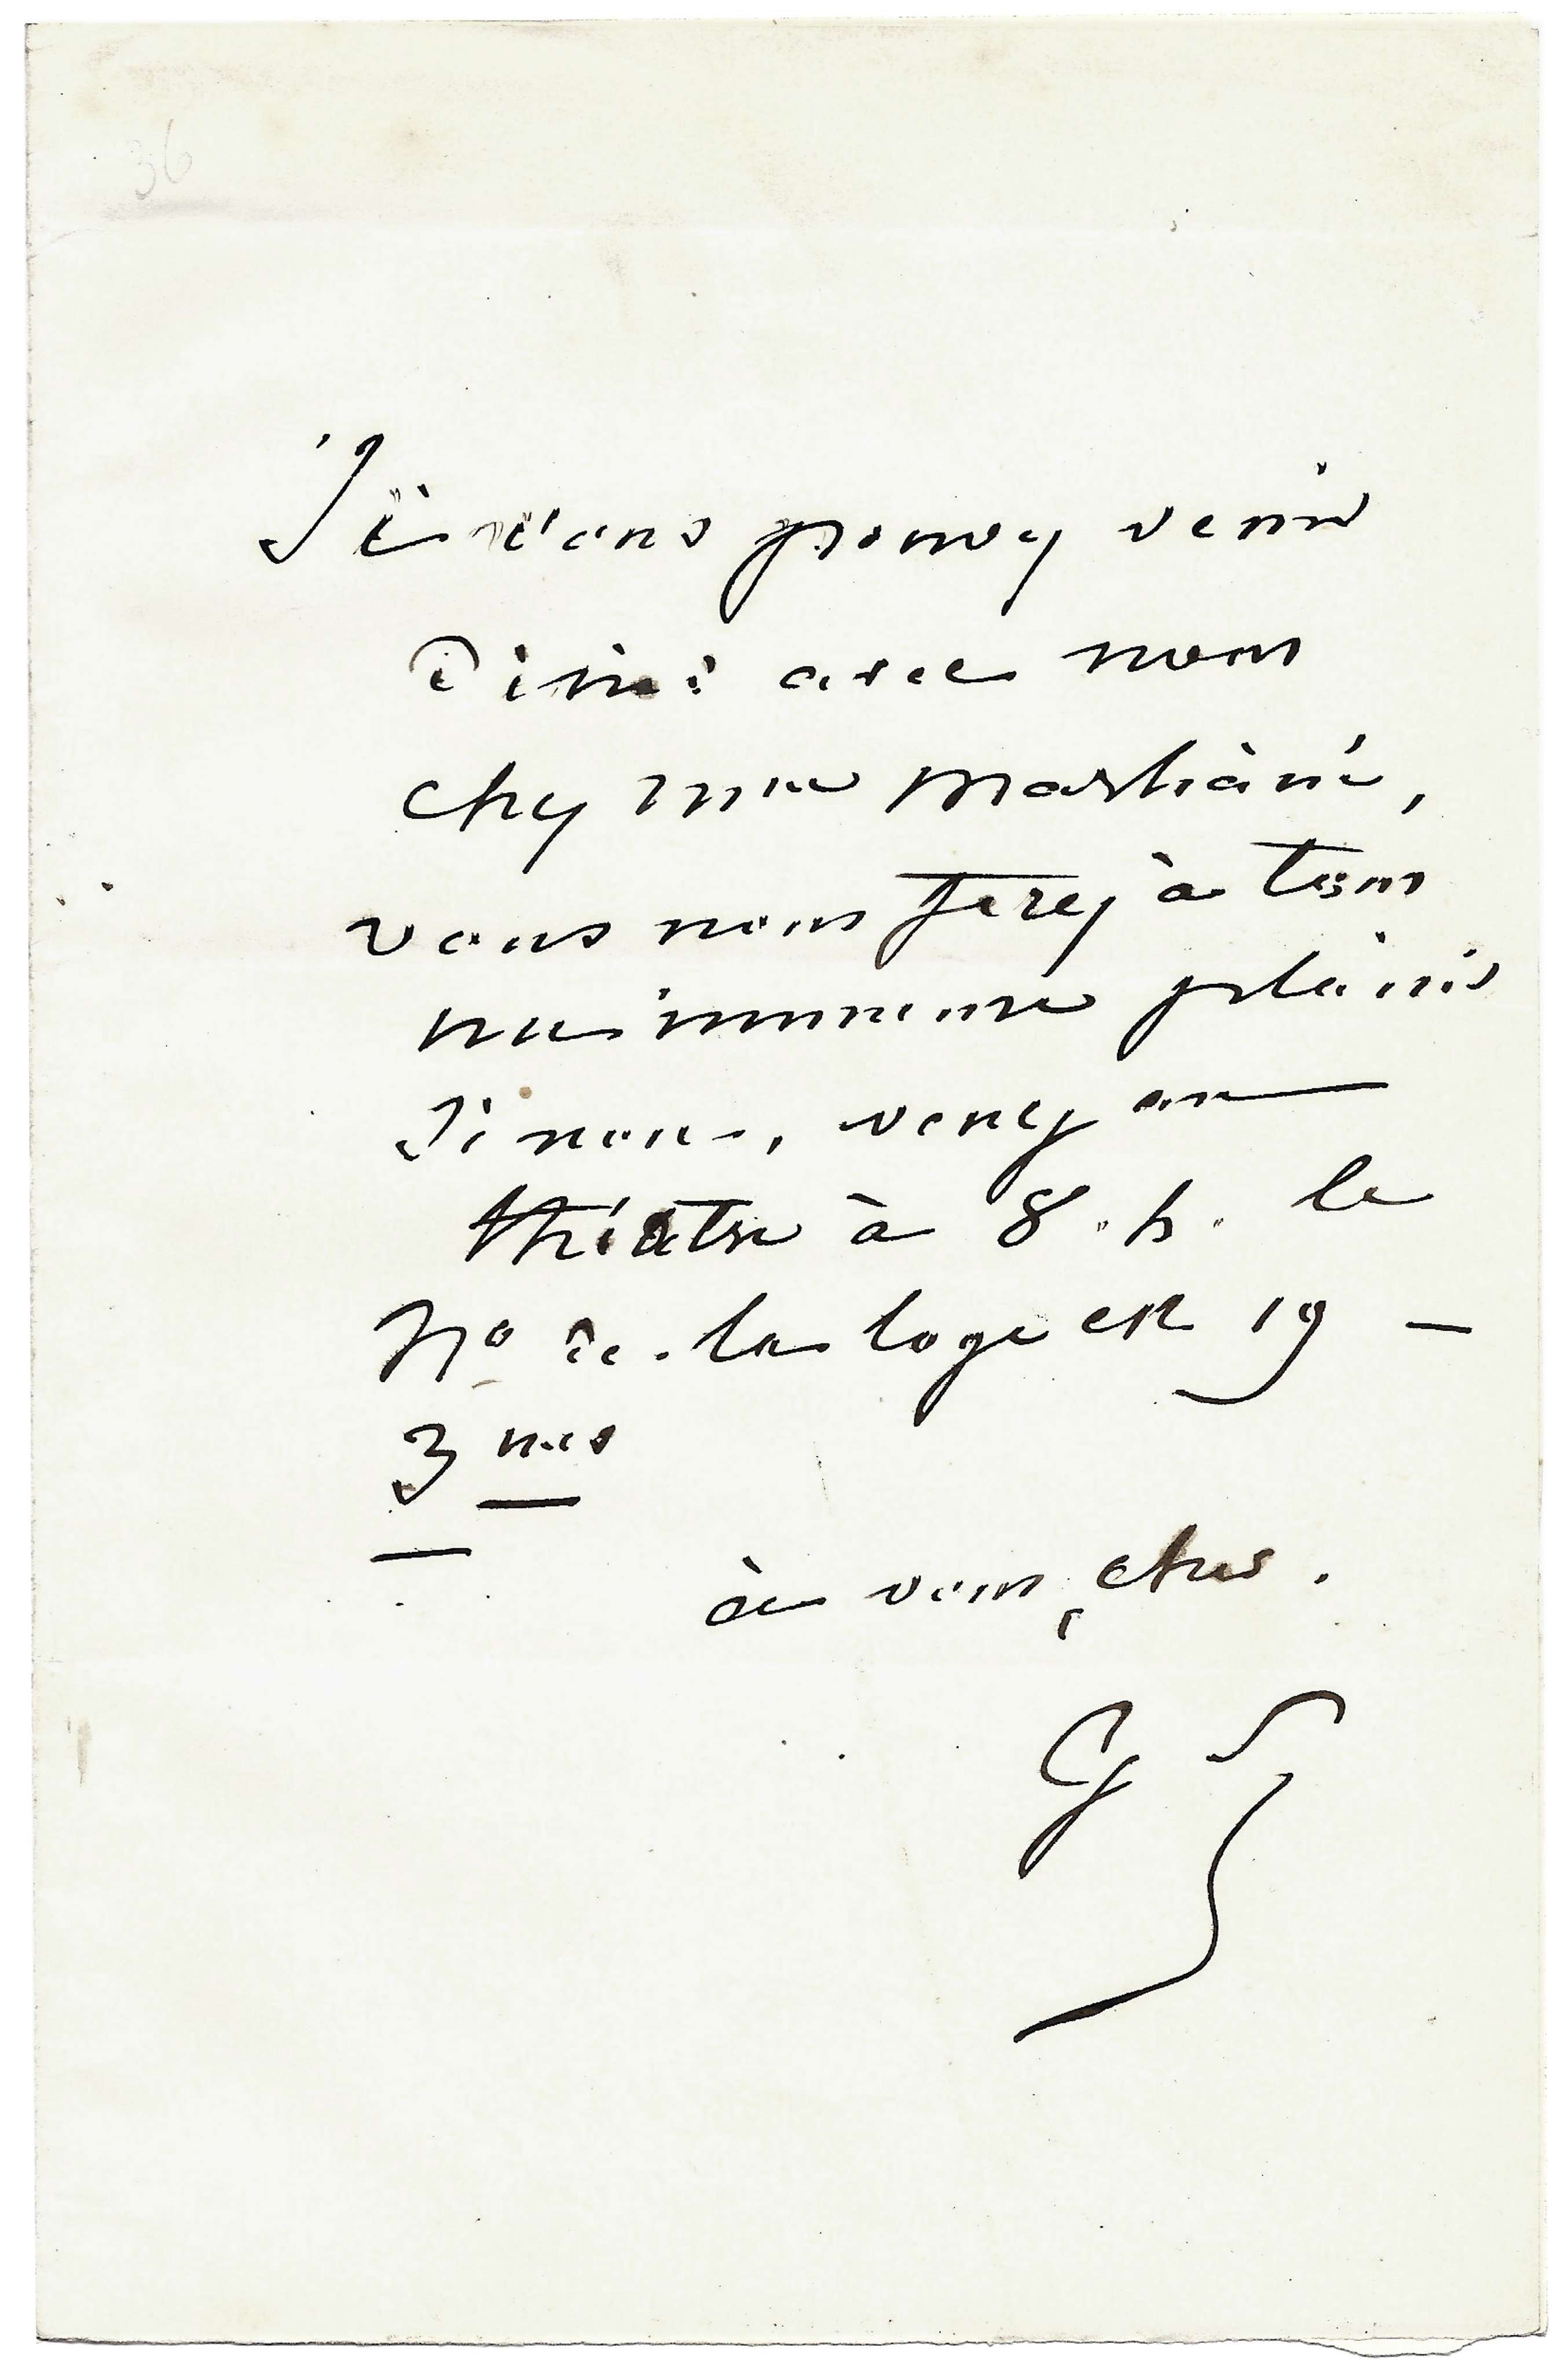 36
Si vous pouvez venir
diner avec nous
chez Mme Marliani,
vous nous ferez à tous
un immense plaisir
Sinon, venez au
théâtre à 8. h. le
No de la loge est 19 —
3 mes
à vous, cher.
G S